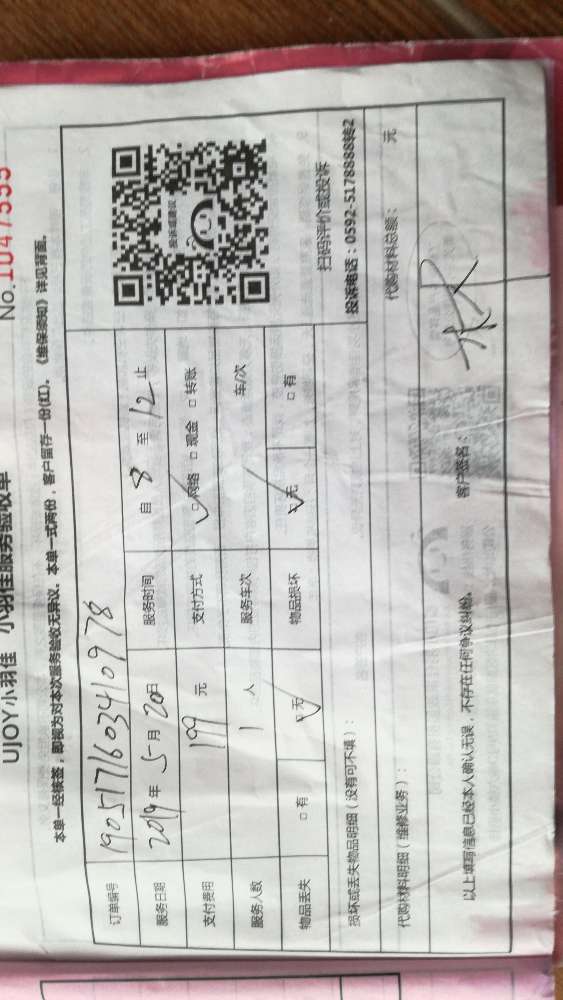 UJOY小羽佳 小羽佳服务验收单 No.1047555
本单一经核签，即视为对本次服务验收无异议。本单一式两份，客户留存一份(红)。《维保须知》详见背面。
订单编号 1905171603410978
服务日期 2019年5月20日 服务时间 自8至12止
支付费用 199元 支付方式 □网络 □现金 □转账
服务人数 1人 服务车次 车/次
物品丢失 □有 □无 物品损坏 □无 □有
投诉或建议
扫码评价或投诉
投诉电话：0592-5178888转2
损坏或丢失物品明细（没有可不填）：
代购材料明细（维修业务）： 代购材料总额： 元
以上填写信息已经本人确认无误，不存在任何争议纠纷。 客户签名：